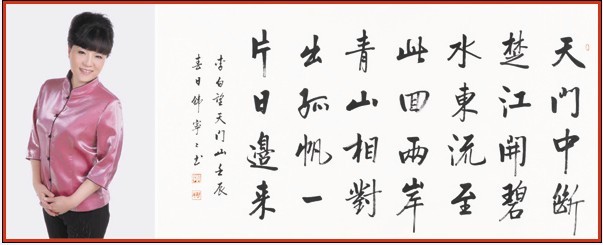 天門中斷
楚江開碧
水東流至
此回兩岸
青山相對
出孤帆一
片日邊来
李白望天門山壬辰
春日